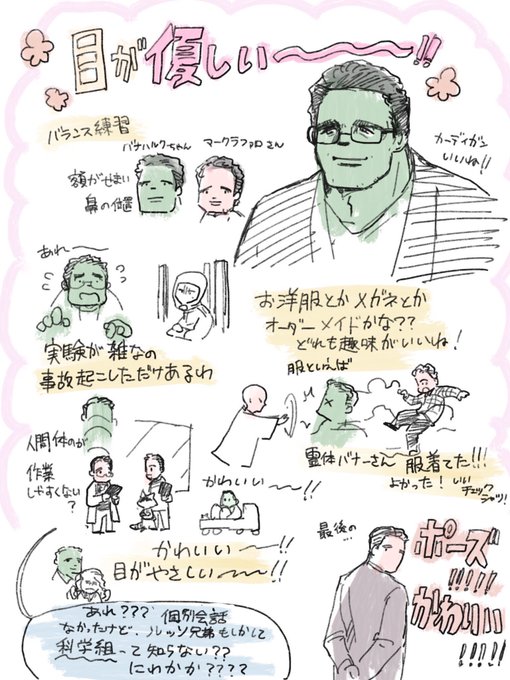 目が優しい〜〜〜!!
バランス練習
バナハルクちゃん
マークラファロさん
額がせまい
鼻の位置
カーディガン
いいね!!
あれ〜〜
実験が雑なの
事故起こしただけあるわ
お洋服とかメガネとか
オーダーメイドかな??
どれも趣味がいいね!
服といえば
霊体バナーさん 服着てた!!!
よかった!
いい
チェック
シャツ!
人間体のが
作業
しやすくない
?
かわいい〜〜!!
かわいい〜〜!!
目がやさしい〜〜!!
あれ??? 個別会話
なかったけど、ルッソ兄弟もしかして
科学組って知らない??
にわかか????
最後の…
ポーズ
!!!!!
かわいい
!!!!!